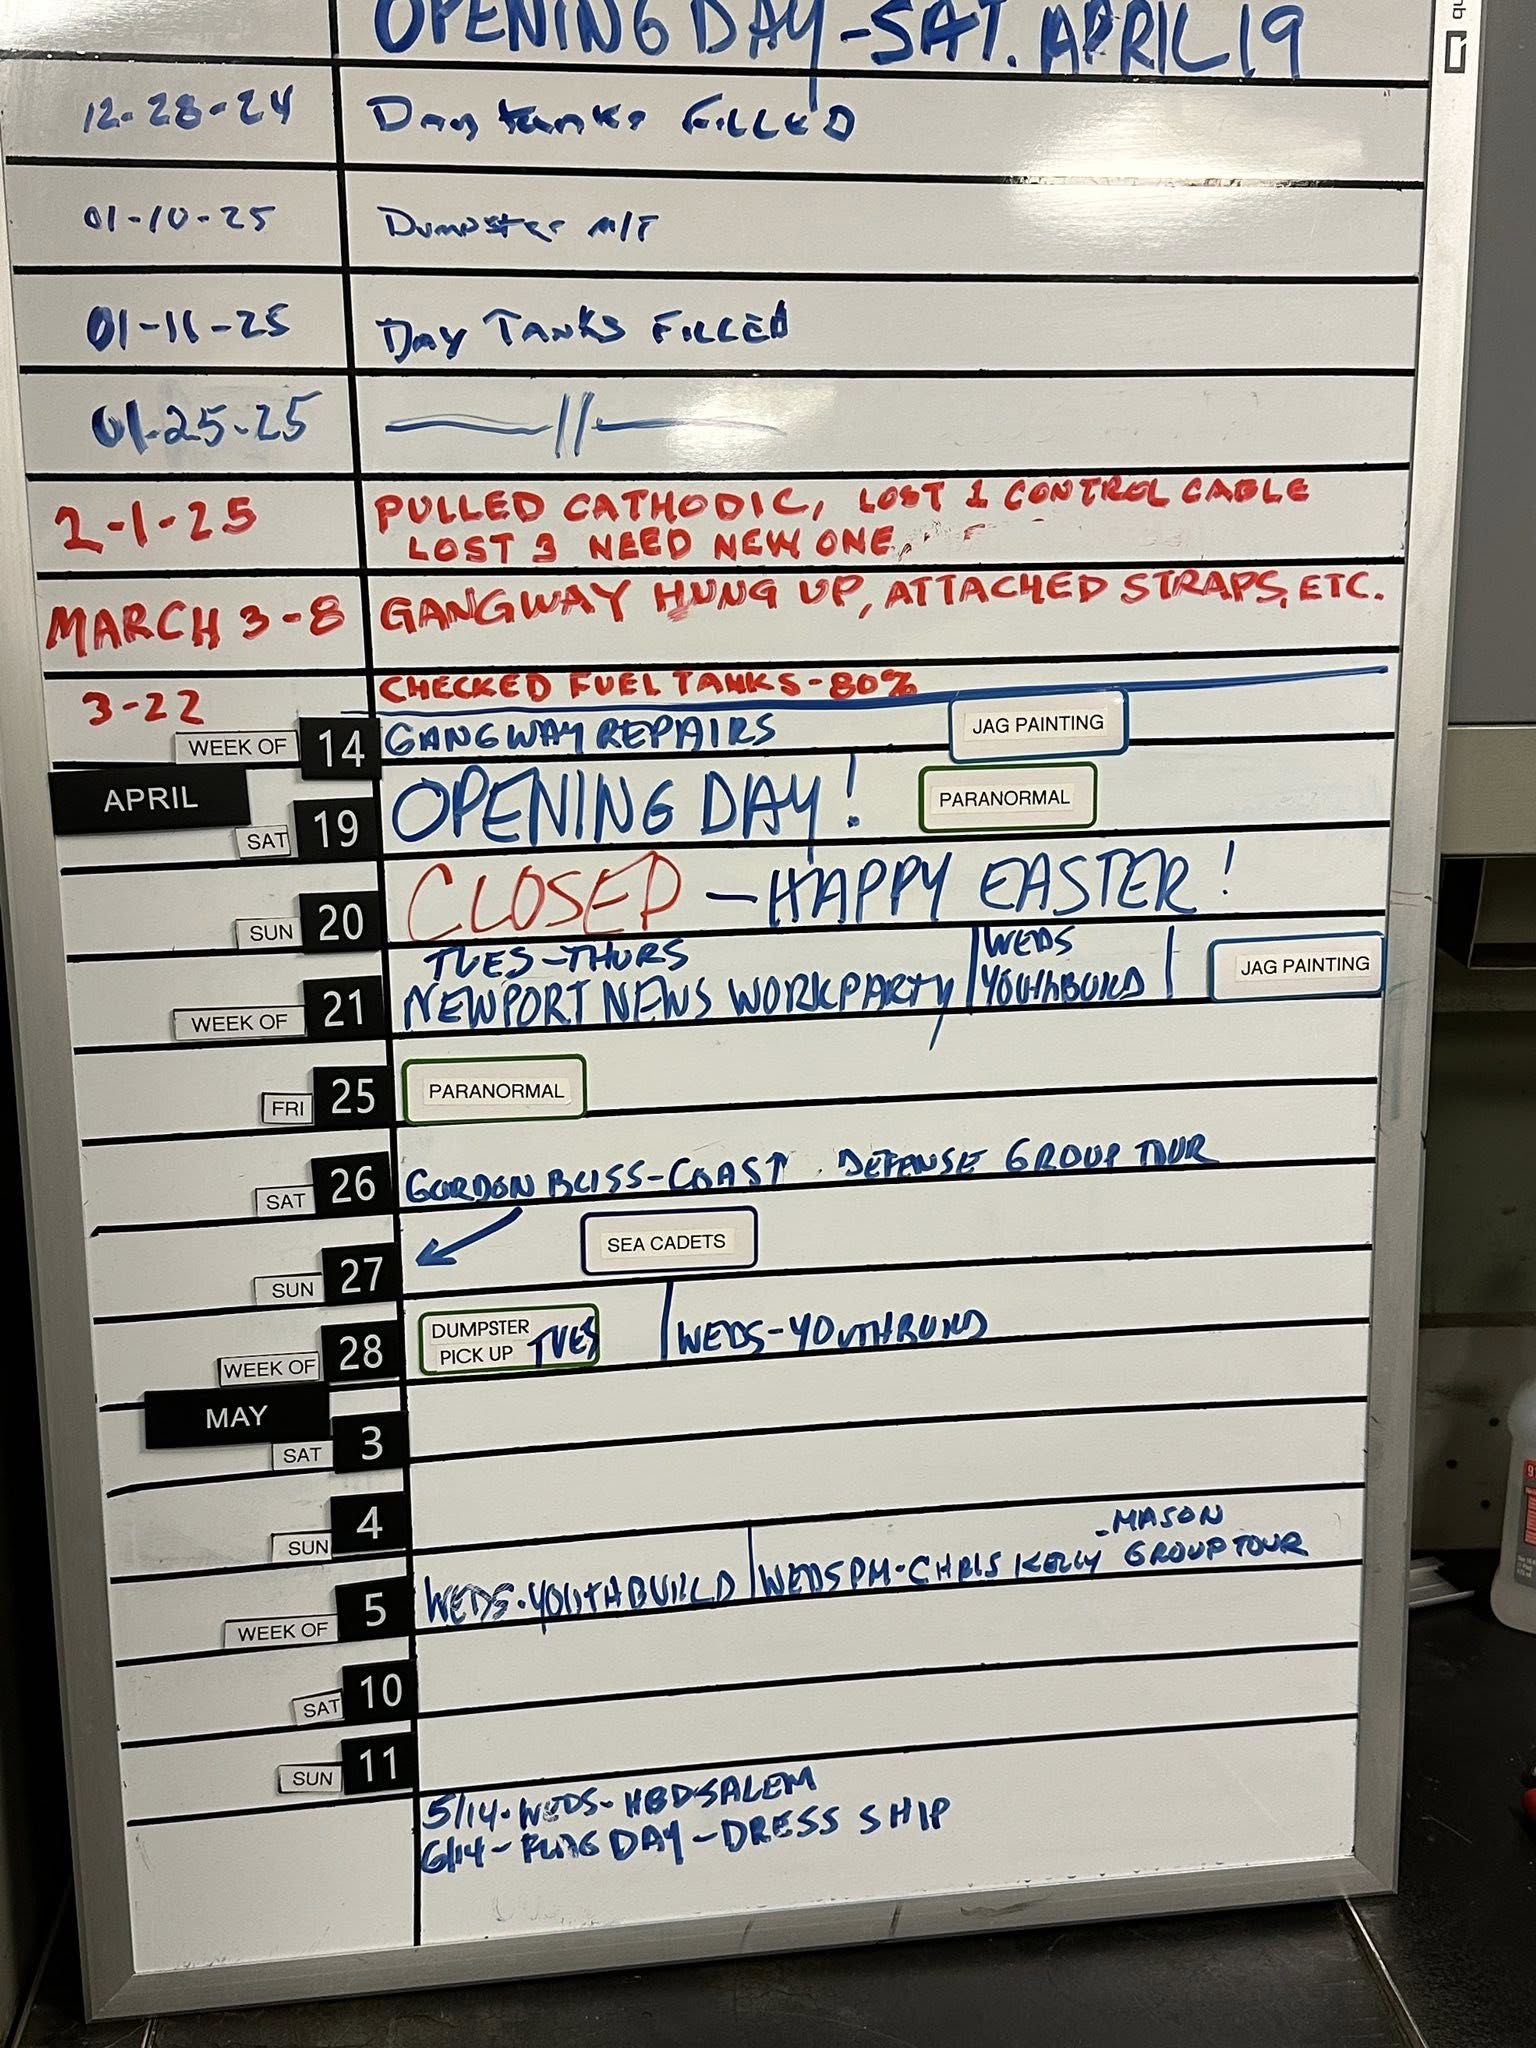 OPENING DAY - SAT. APRIL 19
12-28-24 Day tanks FILLED
01-10-25 Dumpster M/T
01-11-25 DAY TANKS FILLED
01-25-25 —— // ——
2-1-25 PULLED CATHODIC, LOST 1 CONTROL CABLE
LOST 3 NEED NEW ONE
MARCH 3-8 GANGWAY HUNG UP, ATTACHED STRAPS, ETC.
3-22 CHECKED FUEL TANKS - 80%
WEEK OF 14 GANGWAY REPAIRS JAG PAINTING
APRIL
SAT 19 OPENING DAY! PARANORMAL
SUN 20 CLOSED - HAPPY EASTER!
TUES-THURS WEDS
WEEK OF 21 NEWPORT NEWS WORKPARTY YOUTHBUILD JAG PAINTING
FRI 25 PARANORMAL
SAT 26 GORDON BLISS-COAST DEFENSE GROUP TOUR
SUN 27 SEA CADETS
WEEK OF 28 DUMPSTER
PICK UP TUES WEDS-YOUTHBUILD
MAY
SAT 3
SUN 4
-MASON
WEEK OF 5 WEDS-YOUTHBUILD WEDS PM-CHRIS KELLY GROUP TOUR
SAT 10
SUN 11
5/14-WEDS-HBD SALEM
6/14-FLAG DAY-DRESS SHIP